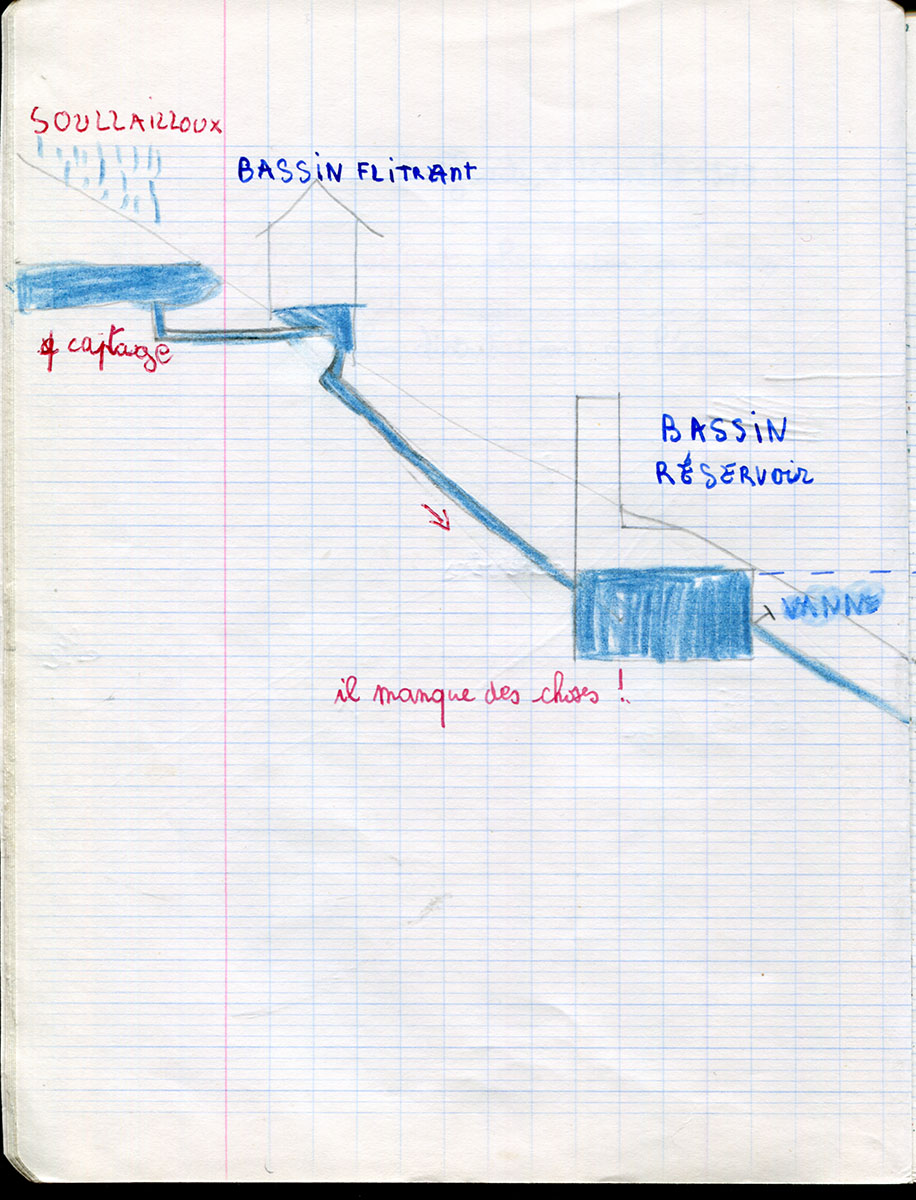 SOULLAILLOUX
BASSIN FLITRANT
captage
BASSIN
RÉSERVOIR
VANNE
il manque des choses !